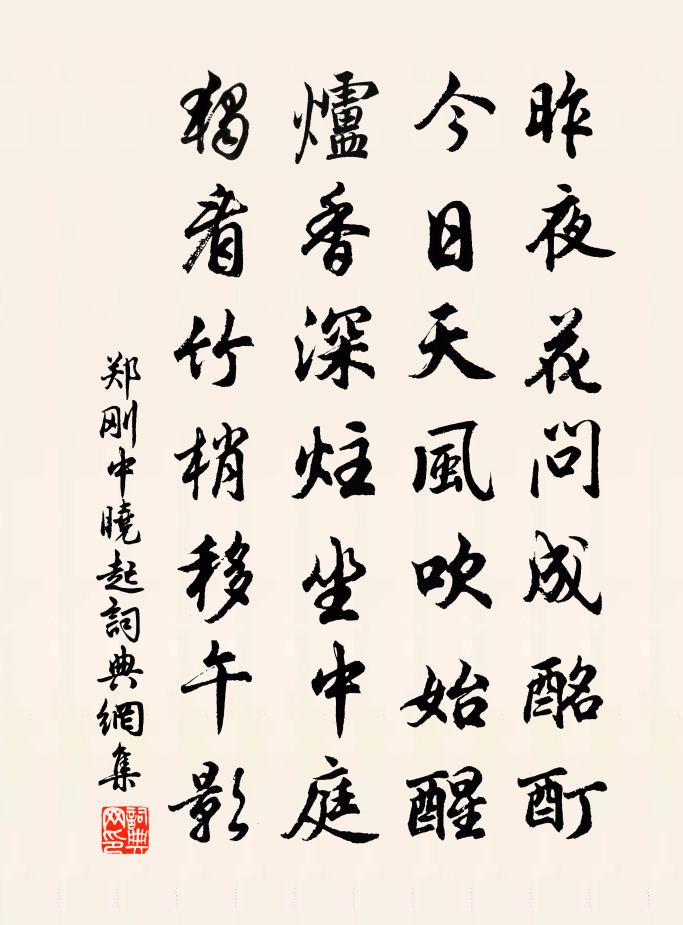 昨夜花問成酩酊
今日天風吹始醒
爐香深炷坐中庭
獨看竹梢移午影
郑刚中曉起詞典網集
詞典
网印